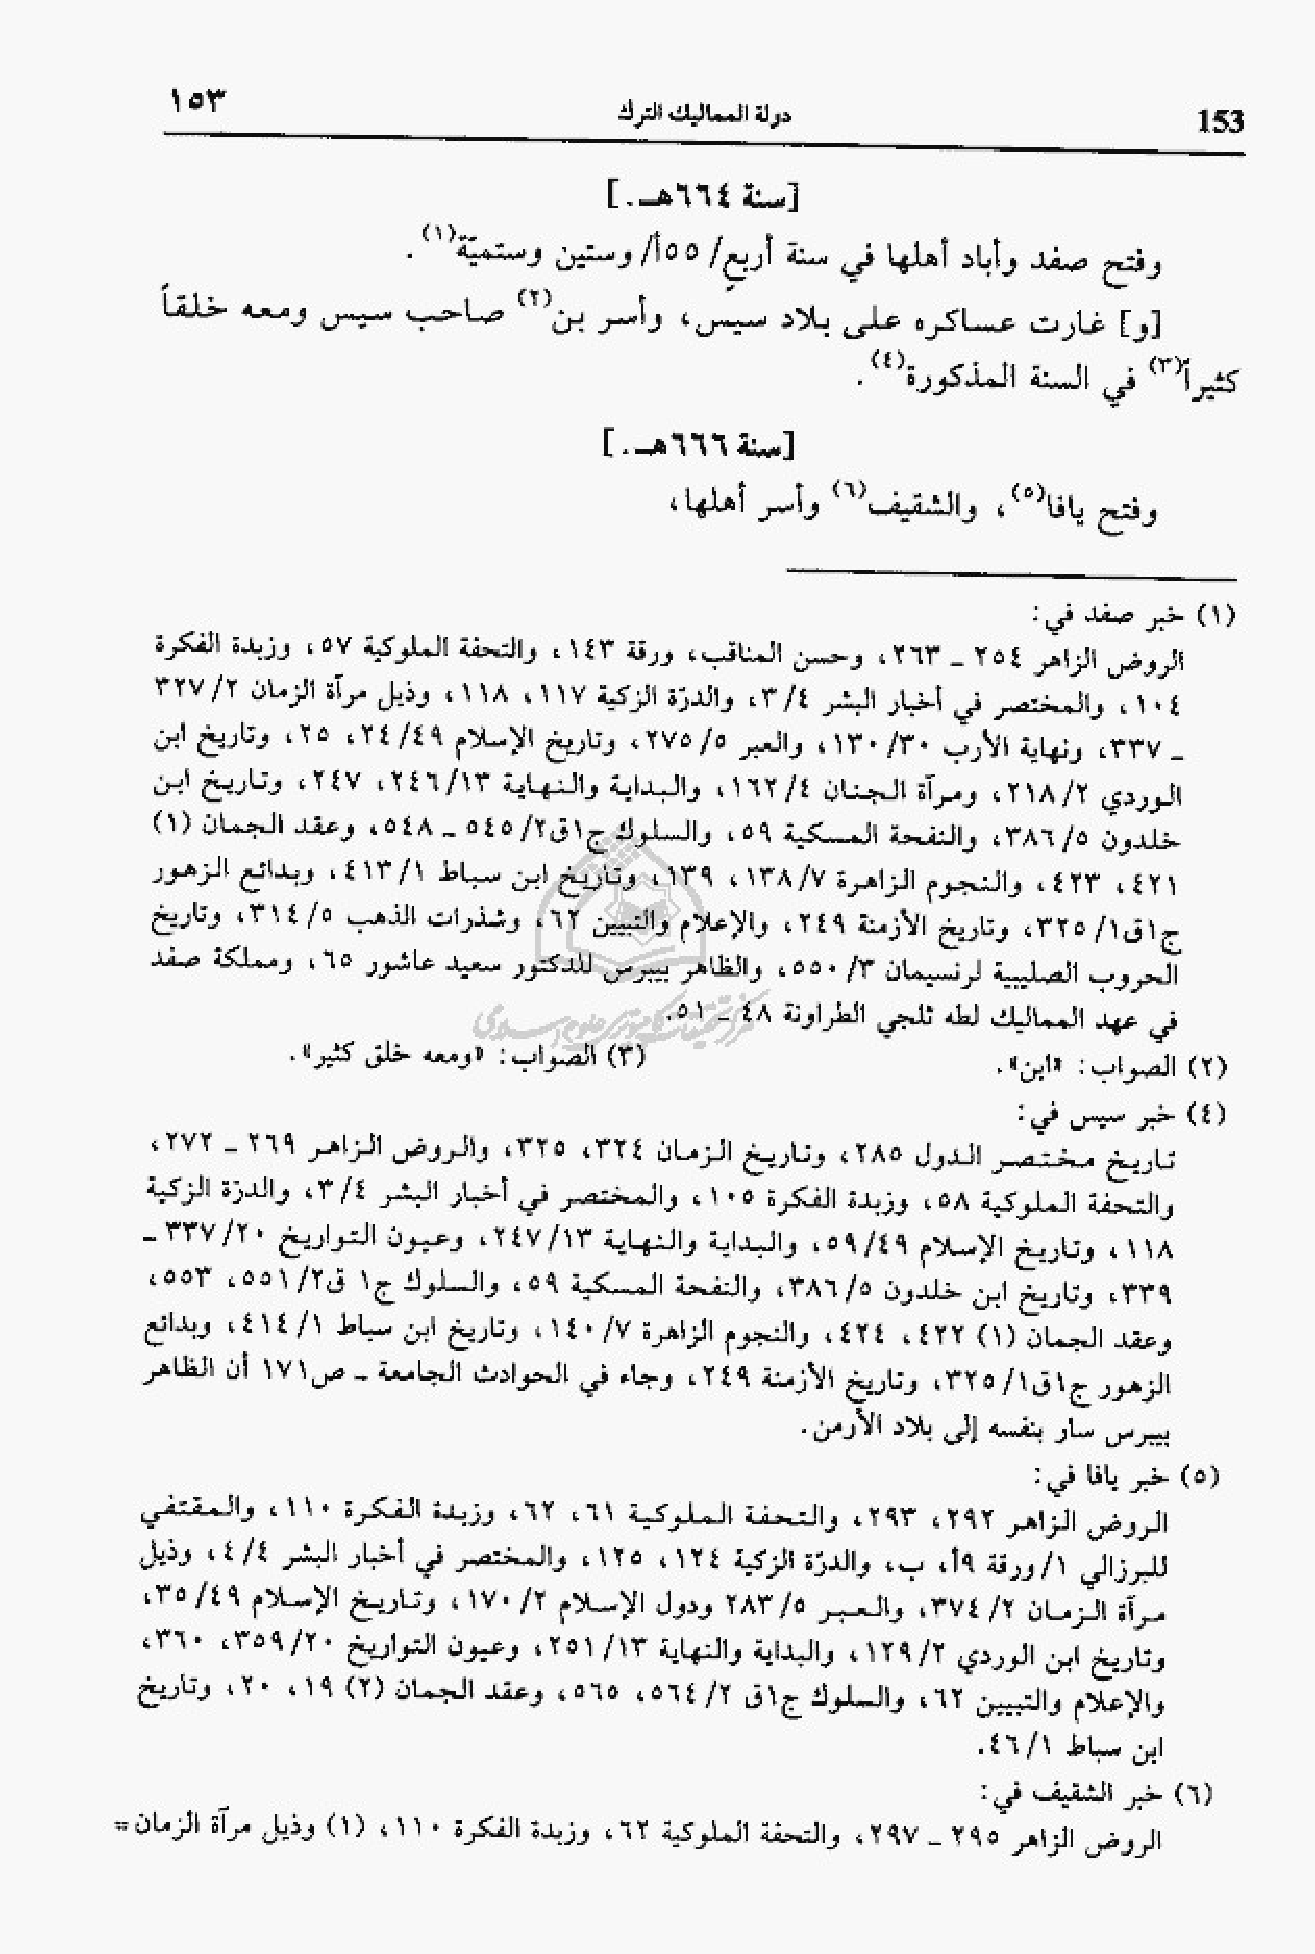 ١٥٣
دولة المماليك الترك
153
[سنة ٦٦٤هـ.]
وفتح صفد وأباد أهلها في سنة أربعٍ/ ٥٥أ/ وستين وستميّة(١).
[و] غارت عساكره على بلاد سيس، وأسر بن(٢) صاحب سيس ومعه خلقاً
كثيراً(٣) في السنة المذكورة(٤).
[سنة ٦٦٦هـ.]
وفتح يافا(٥)، والشقيف(٦) وأسر أهلها،
(١) خبر صفد في:
الروض الزاهر ٢٥٤ ـ ٢٦٣، وحسن المناقب، ورقة ١٤٣، والتحفة الملوكية ٥٧، وزبدة الفكرة
١٠٤، والمختصر في أخبار البشر ٣/٤، والدرّة الزكية ١١٧، ١١٨، وذيل مرآة الزمان ٣٢٧/٢
ـ ٣٣٧، ونهاية الأرب ١٣٠/٣٠، والعبر ٢٧٥/٥، وتاريخ الإسلام ٢٤/٤٩، ٢٥، وتاريخ ابن
الوردي ٢١٨/٢، ومرآة الجنان ١٦٢/٤، والبداية والنهاية ٢٤٦/١٣، ٢٤٧، وتاريخ ابن
خلدون ٣٨٦/٥، والنفحة المسكية ٥٩، والسلوك ج١ق٥٤٥/٢ ـ ٥٤٨، وعقد الجمان (١)
٤٢١، ٤٢٣، والنجوم الزاهرة ١٣٨/٧، ١٣٩، وتاريخ ابن سباط ٤١٣/١، وبدائع الزهور
ج١ق٣٢٥/١، وتاريخ الأزمنة ٢٤٩، والإعلام والتبيين ٦٢، وشذرات الذهب ٣١٤/٥، وتاريخ
الحروب الصليبية لرنسيمان ٥٥٠/٣، والظاهر بيبرس للدكتور سعيد عاشور ٦٥، ومملكة صفد
في عهد المماليك لطه ثلجي الطراونة ٤٨ ـ ٥١.
(٢) الصواب: «ابن».
(٣) الصواب: «ومعه خلق كثير».
(٤) خبر سيس في:
تاريخ مختصر الدول ٢٨٥، وتاريخ الزمان ٣٢٤، ٣٢٥، والروض الزاهر ٢٦٩ ـ ٢٧٢،
والتحفة الملوكية ٥٨، وزبدة الفكرة ١٠٥، والمختصر في أخبار البشر ٣/٤، والدرّة الزكية
١١٨، وتاريخ الإسلام ٥٩/٤٩، والبداية والنهاية ٢٤٧/١٣، وعيون التواريخ ٣٣٧/٢٠ ـ
٣٣٩، وتاريخ ابن خلدون ٣٨٦/٥، والنفحة المسكية ٥٩، والسلوك ج١ ق٥٥١/٢، ٥٥٣،
وعقد الجمان (١) ٤٢٢، ٤٢٤، والنجوم الزاهرة ١٤٠/٧، وتاريخ ابن سباط ٤١٤/١، وبدائع
الزهور ج١ق٣٢٥/١، وتاريخ الأزمنة ٢٤٩، وجاء في الحوادث الجامعة ـ ص١٧١ أن الظاهر
بيبرس سار بنفسه إلى بلاد الأرمن.
(٥) خبر يافا في:
الروض الزاهر ٢٩٢، ٢٩٣، والتحفة الملوكية ٦١، ٦٢، وزبدة الفكرة ١١٠، والمقتفي
للبرزالي ١/ ورقة ٩أ، ب، والدرّة الزكية ١٢٤، ١٢٥، والمختصر في أخبار البشر ٤/٤، وذيل
مرآة الزمان ٣٧٤/٢، والعبر ٢٨٣/٥ ودول الإسلام ١٧٠/٢، وتاريخ الإسلام ٣٥/٤٩،
وتاريخ ابن الوردي ١٢٩/٢، والبداية والنهاية ٢٥١/١٣، وعيون التواريخ ٣٥٩/٢٠، ٣٦٠،
والإعلام والتبيين ٦٢، والسلوك ج١ق ٥٦٤/٢، ٥٦٥، وعقد الجمان (٢) ١٩، ٢٠، وتاريخ
ابن سباط ٤٦/١.
(٦) خبر الشقيف في:
الروض الزاهر ٢٩٥ ـ ٢٩٧، والتحفة الملوكية ٦٢، وزبدة الفكرة ١١٠، (١) وذيل مرآة الزمان=